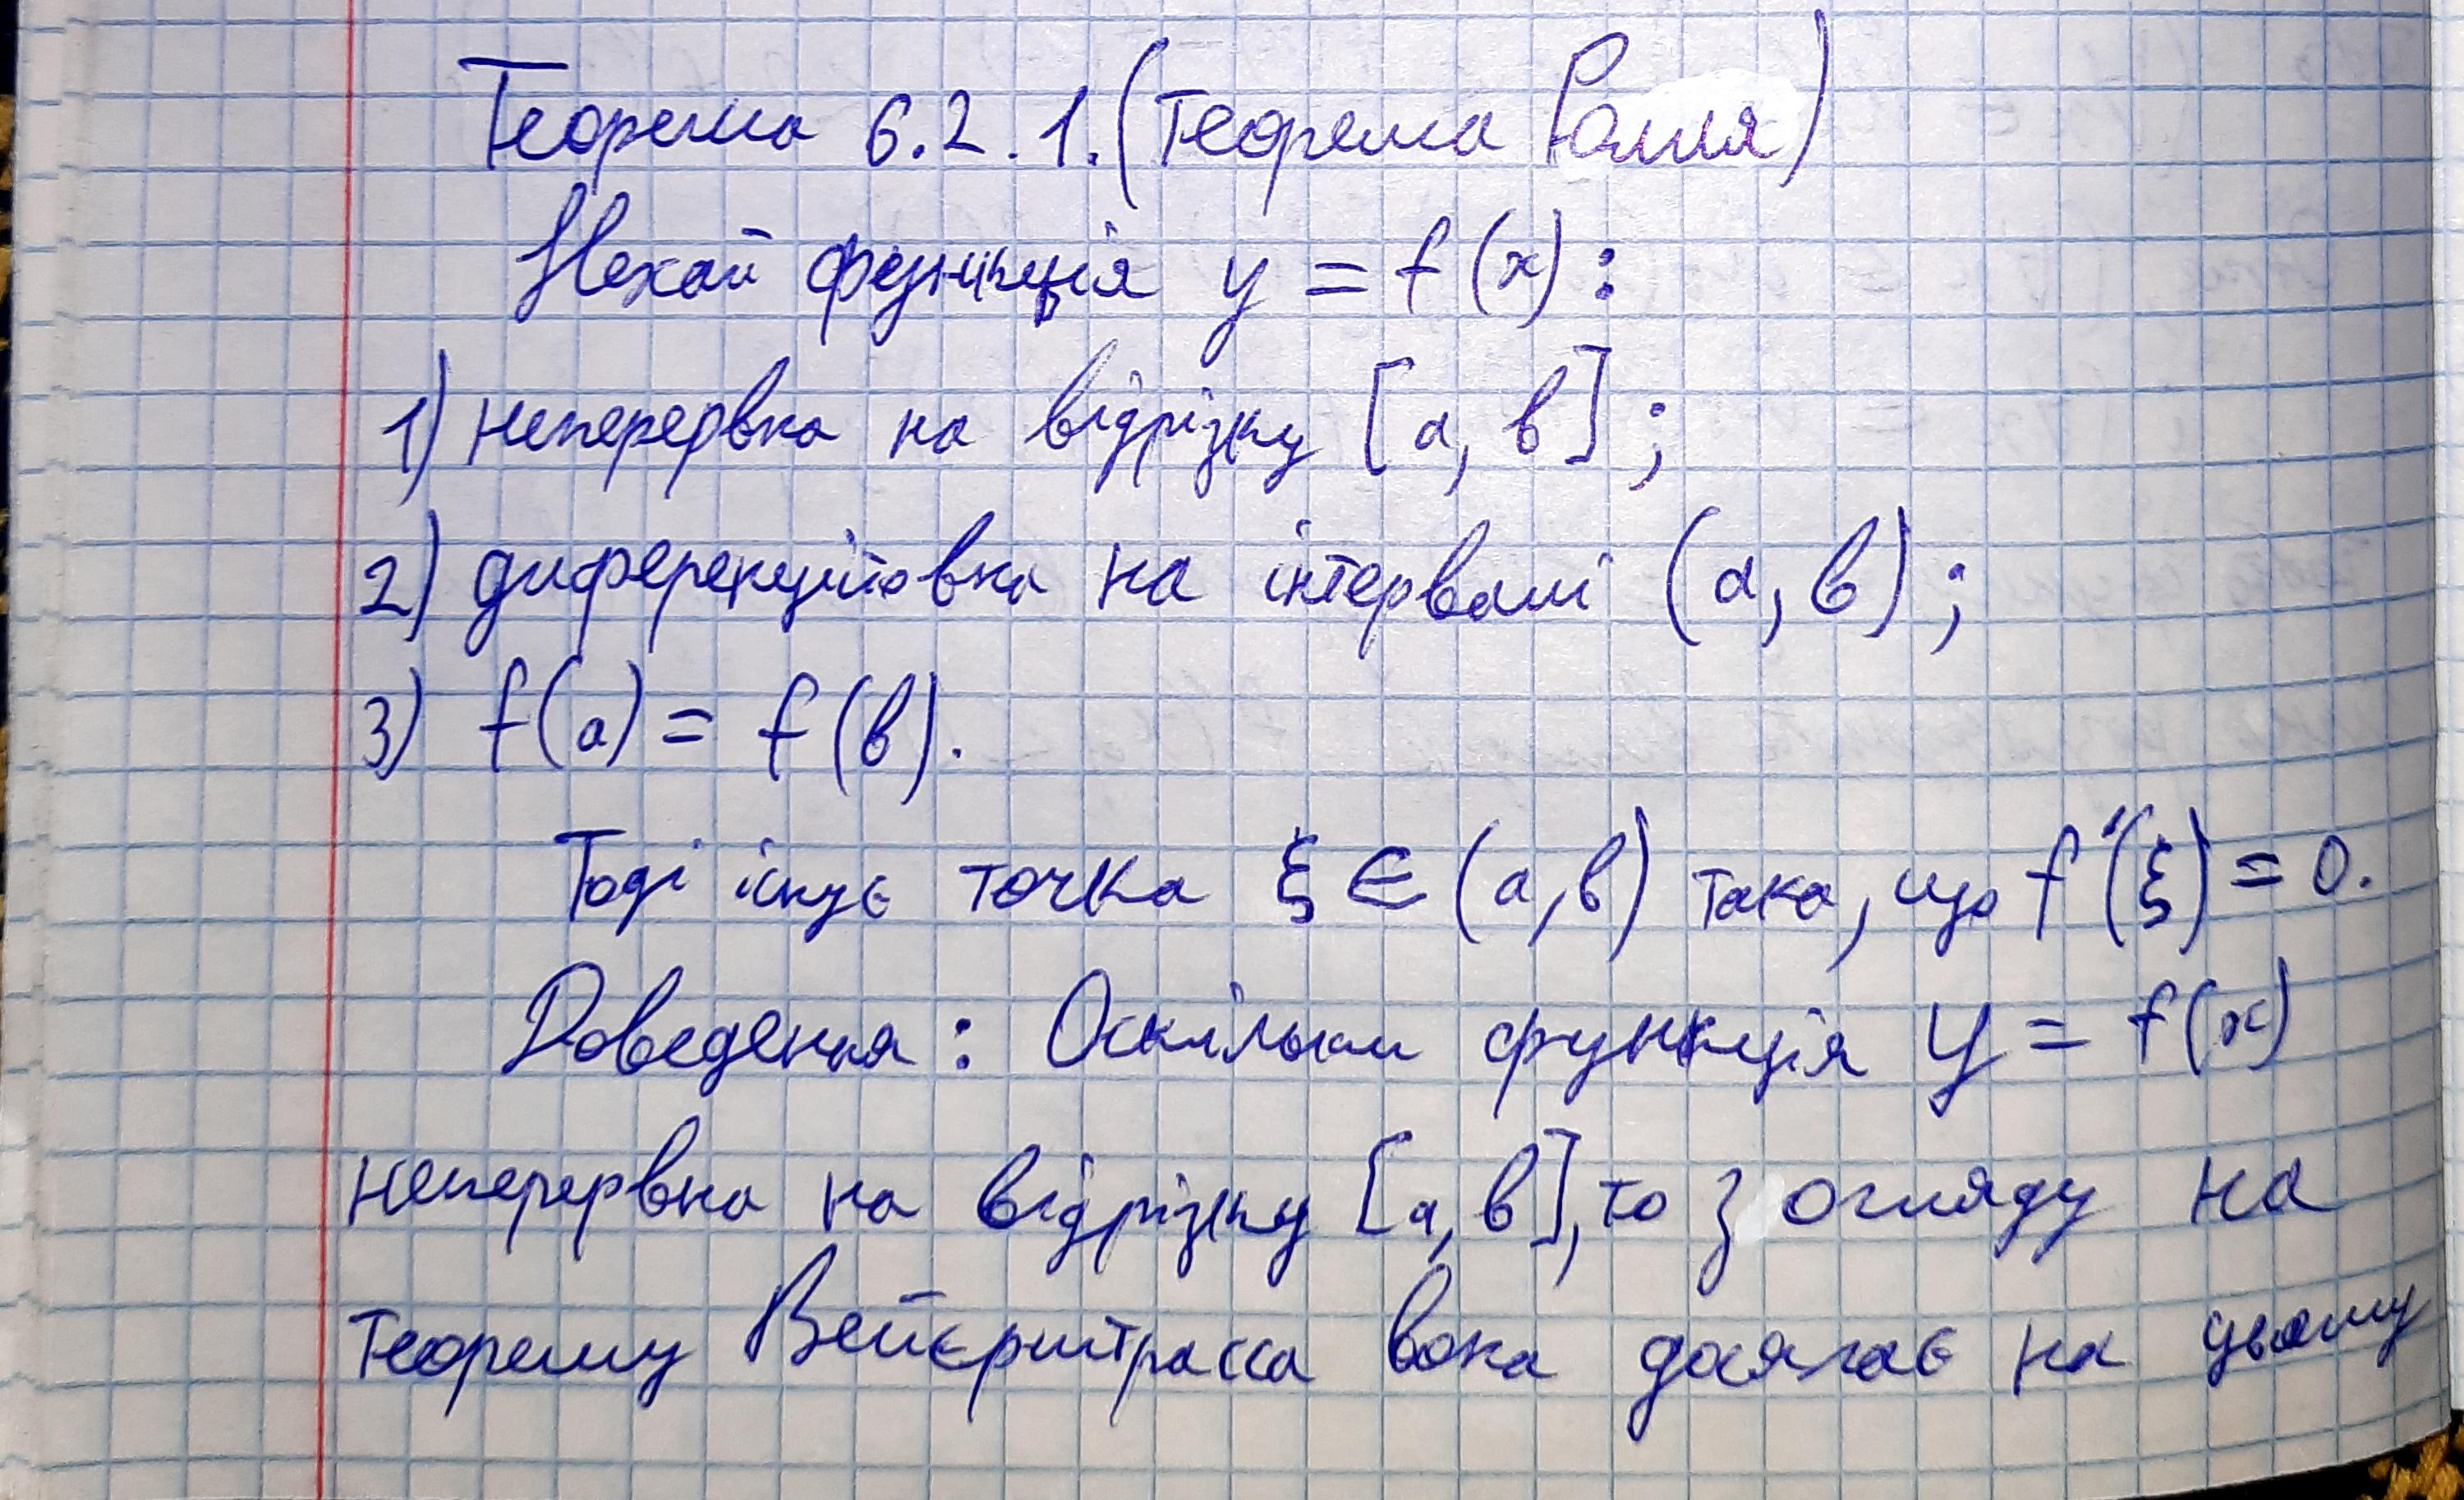 Теорема 6.2.1. (Теорема Ролля)
Нехай функція y = f(x):
1) неперервна на відрізку [a, b];
2) диференційовна на інтервалі (a, b);
3) f(a) = f(b).
Тоді існує точка ξ ∈ (a, b) така, що f'(ξ) = 0.
Доведення: Оскільки функція y = f(x)
неперервна на відрізку [a, b], то з огляду на
теорему Вейєрштрасса вона досягає на цьому